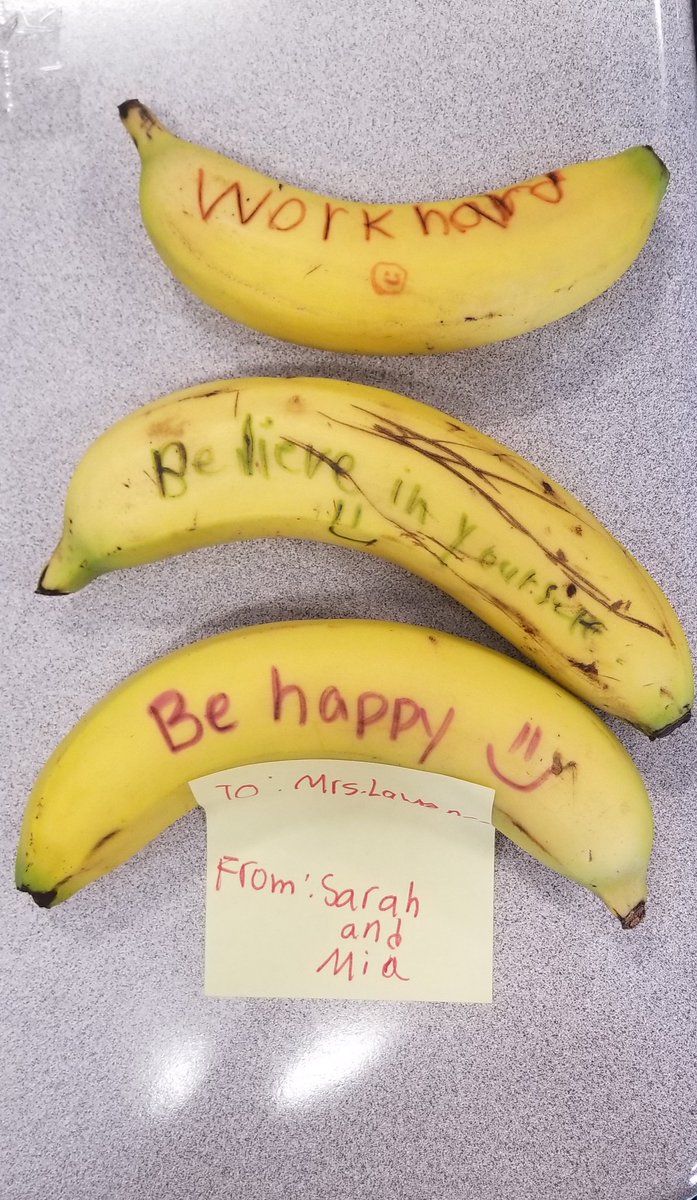 Work hard
Believe in yourself
Be happy
To: Mrs.
From: Sarah
and
Mia